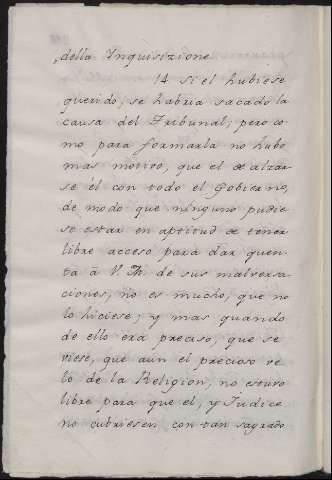 della Inquisizione
14 Si el hubiese
querido, se habria sacado la
causa del Tribunal; pero co
mo para formarla no hubo
mas motivo, que el de alzar
se él con todo el Gobierno,
de modo que ninguno pudie
se estar en aptitud de tener
libre acceso para dar quen
ta à V. M. de sus malversa
ciones, no es mucho, que no
lo hiciese; y mas quando
de ello era preciso, que se
viese, que aun el precioso ve
lo de la Religion, no estuvo
libre para que el, y Iudice
no cubriesen con tan sagrado